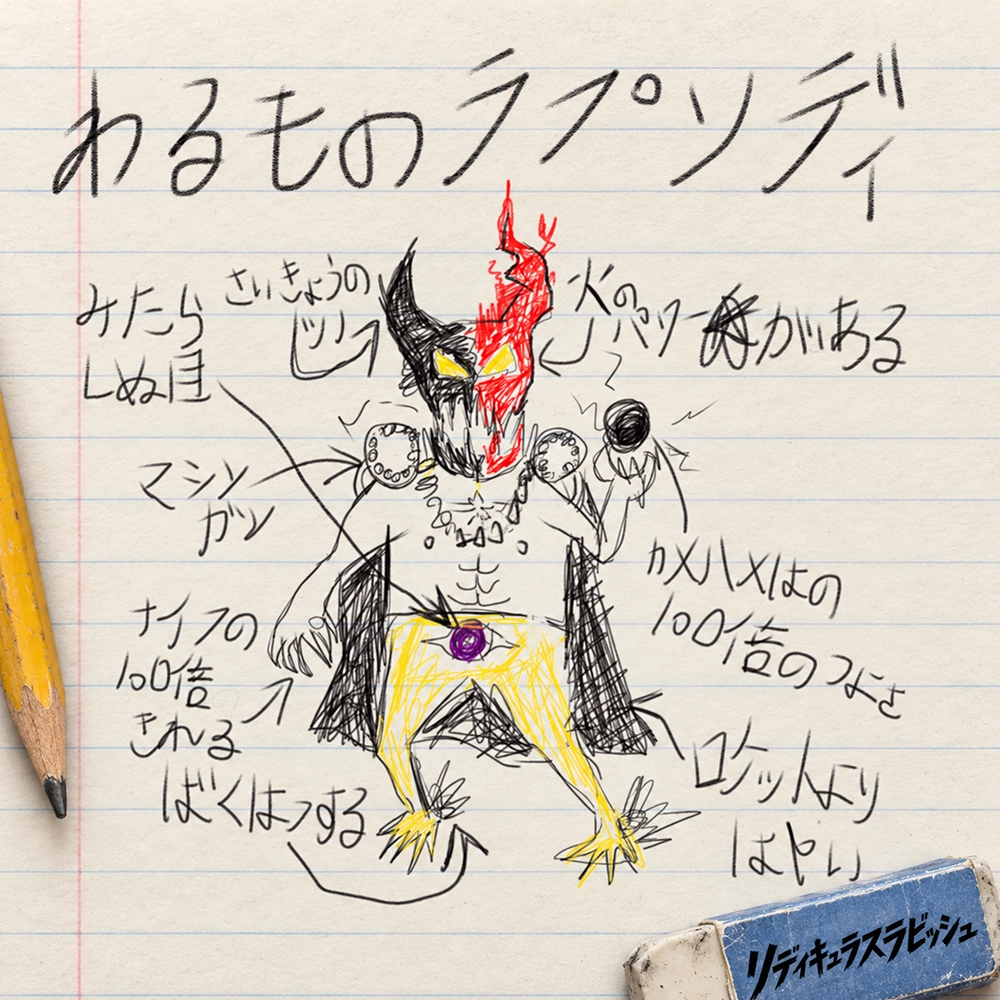 わるものラプソディ
みたら
しぬ目
さいきょうの
ツノ
火の
パワーがある
マシン
ガン
カメハメはの
100倍のつよさ
ナイフの
100倍
きれる
ばくはつする
ロケットより
はやい
リディキュラスラビッシュ